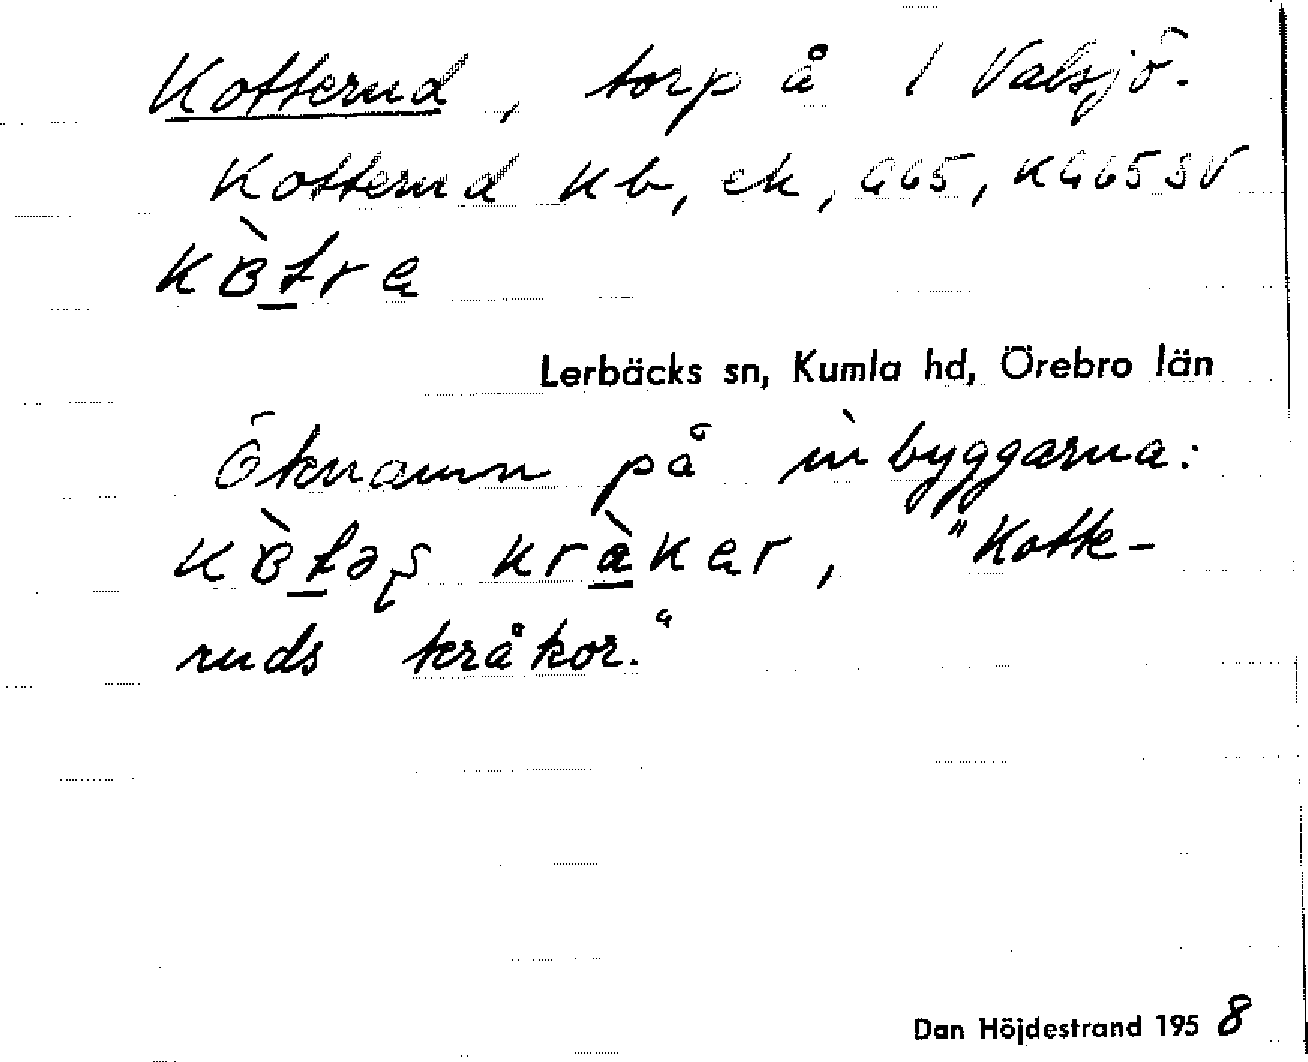 Kotterud, torp å 1 Valsjö.
Kotterud kb, ek, G65, KG65SV
kɞ̀tra
Lerbäcks sn, Kumla hd, Örebro län
Öknamn på inbyggarna:
kɞ̀təʂ kràkar, "Kotte-
ruds kråkor."
Dan Höjdestrand 1958